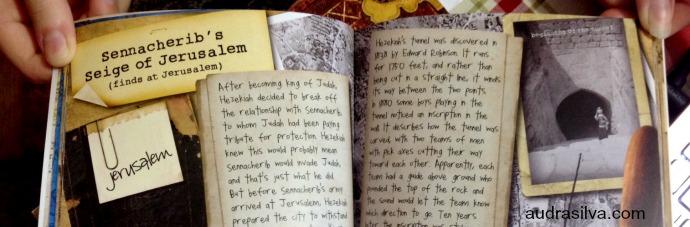 Sennacherib's
Seige of Jerusalem
(finds at Jerusalem)
Jerusalem
After becoming king of Judah,
Hezekiah decided to break off
the relationship with Sennacherib
to whom Judah had been paying
tribute for protection. Hezekiah
knew this would probably mean
Sennacherib would invade Judah,
and that's just what he did.
But before Sennacherib's army
arrived at Jerusalem, Hezekiah
prepared the city to withstand
Hezekiah's tunnel was discovered in
1838 by Edward Robinson. It runs
for 1750 feet, and rather than
being cut in a straight line, it winds
its way between the two points.
In 1880 some boys playing in the
tunnel noticed an inscription in the
wall. It describes how the tunnel was
carved with two teams of men
with pick axes cutting their way
toward each other. Apparently, each
team had a guide above ground who
pounded the top of the rock and
the sound would let the team know
which direction to go. Ten years
later the inscription was
beginning of the tunnel
audrasilva.com